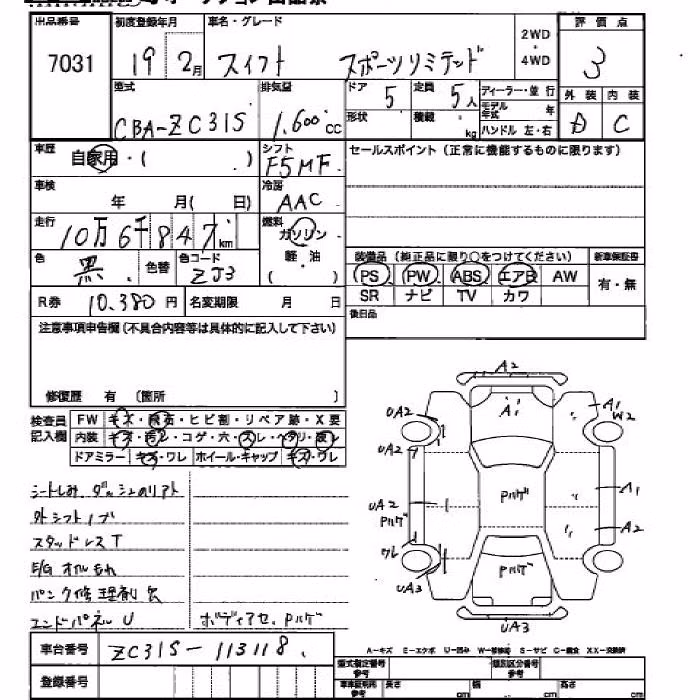 出品番号 初度登録年月 車名・グレード 2WD・4WD 評価点
7031 19 2月 スイフト スポーツリミテッド 3
型式 排気量 ドア 5 定員 5人 ディーラー・並行 外装 内装
CBA-ZC31S 1,600cc 形状 積載 kg モデル年式 年 ハンドル 左・右 D C
車歴 自家用・( ) シフト F5MF セールスポイント(正常に機能するものに限ります)
車検 年 月( 日) 冷房 AAC
走行 10万6千847km 燃料 ガソリン
軽・油
( )
色 黒 色替 色コード ZJ3
装備品(純正品に限り○をつけてください) 新車保証書
PS PW ABS エアB AW 有・無
SR ナビ TV カワ
R券 10,380円 名変期限 月 日 後日品
注意事項申告欄(不具合内容等は具体的に記入して下さい)
修復歴 有 (箇所 )
検査員記入欄 FW キズ・飛石・ヒビ割・リペア跡・X要
内装 キズ・汚レ・コゲ・穴・スレ・ヘタリ・破レ
ドアミラー キズ・ワレ ホイール・キャップ キズ・ワレ
A2
UA2 A1 A1 W2
UA2
UA2 Pハゲ Pハゲ A1
A2
ワレ Pハゲ
UA3
UA3
シートしみ ダッシュのリアト
外シフトノブ
スタッドレスT
E/G オイルもれ
パンク修理剤欠
エンドパネルU ボディアセ、Pハゲ
車台番号 ZC31S-113118
登録番号
A-キズ E-エクボ U-凹み W-補修跡 S-サビ C-腐食 XX-交換済
型式指定番号 参考 類別区分番号 参考
車車証判断 参考 長さ cm 幅 cm 高さ cm